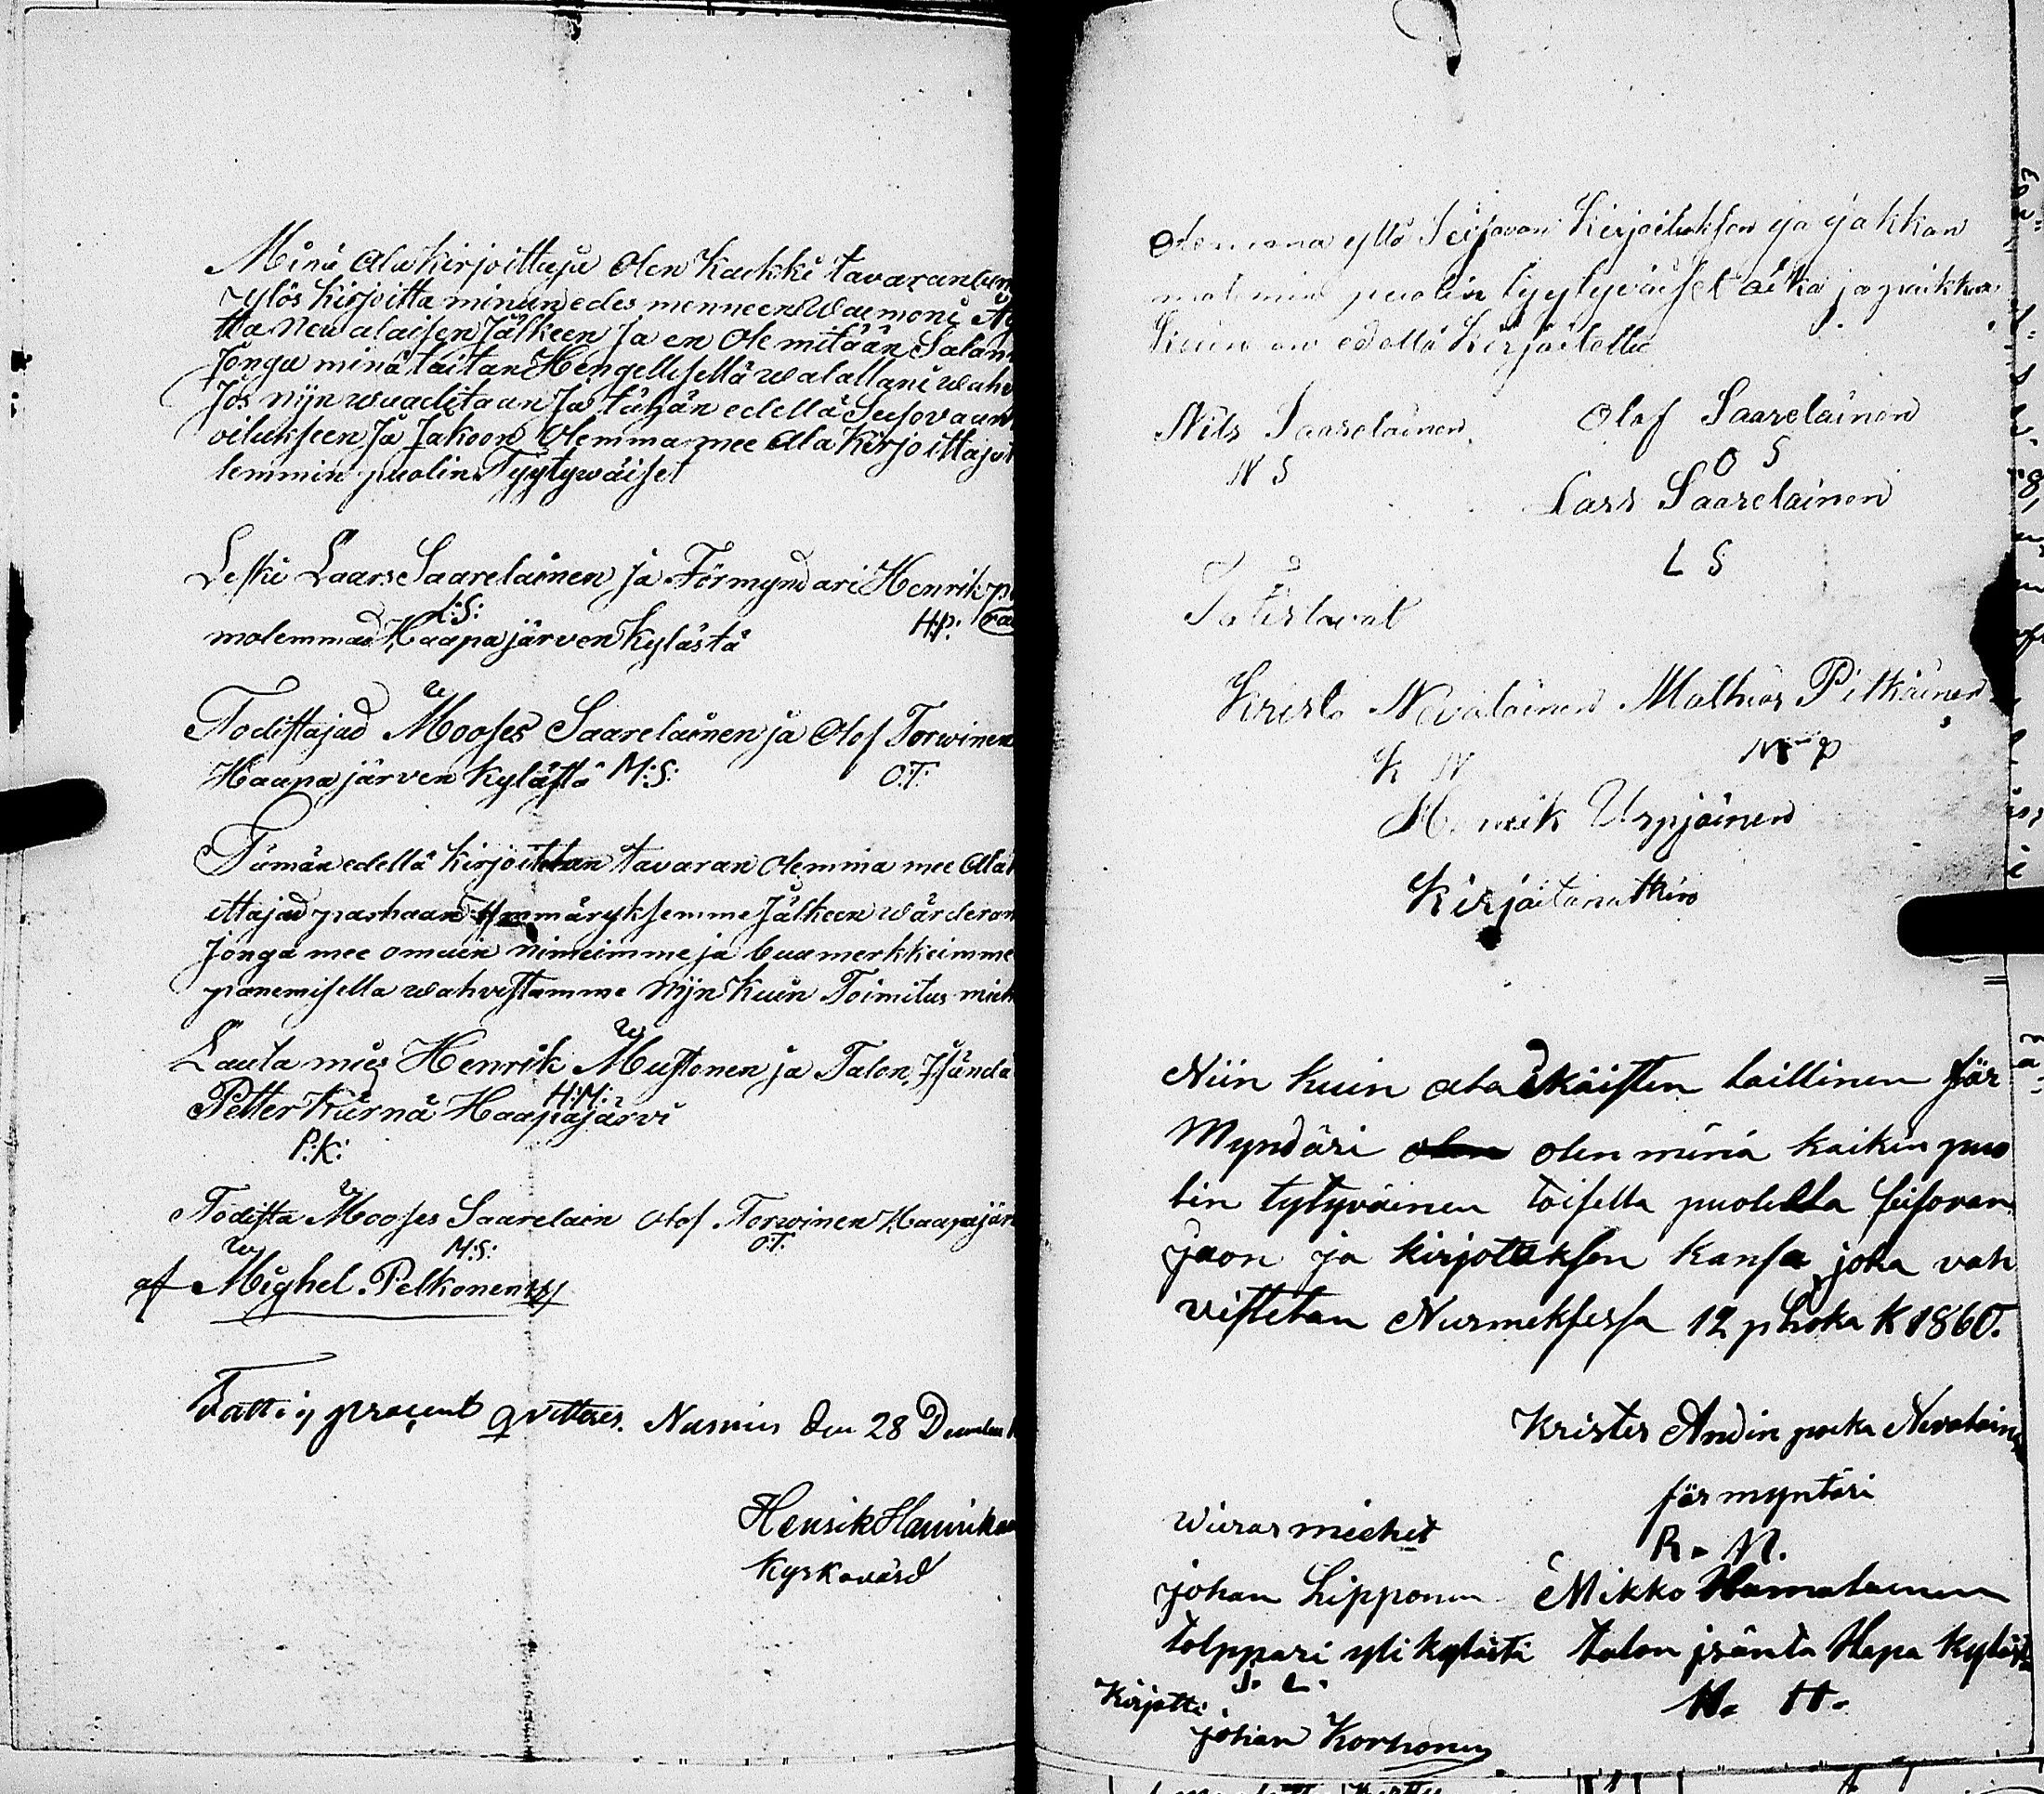 Minä Ala kirjoittaja Olen Kaikki tavaran
Ylös kirjoitta minun edes menneen Waemoni
tta Newalaisen Jälkeen Ja en Ole mitään Salan
Jonga minä taitan Hengellisellä walallani wahv
Jos nijn waaditaan Ja tähän edellä Seisovaan
oitukseen Ja Jakoon Olemma mee Ala Kirjoittajat
lemmin puolin Tyytywäiset
Leski Laars Saarelainen ja Förmyndari Henrik P
L:S: H:P:
molemmad Haapajärven kylästä
Todistajad Mooses Saarelainen ja Olof Torwinen
Haapajärven kylästä M:S: O:T:
Tämän edellä kirjoitetun tavaran Olemma mee Ala
ittajad parhaan Ymmäryksemme Jälkeen wärderan
Jonga mee omain nimeimme ja buumerkkeimme
panemisella wahvistamme Nijn kuin Toimitus mieh
Lauta mies Henrik Mustonen ja Talon Isändä
H:M:
Petter Kärnä Haapajärvi
P:K:
Todista Mooses Saarelain Olof Torwinen Haapajär
M:S: O:T:
af Mighel Pelkonen
Fatti procent qvitteres. Nurmis den 28 December
Henrik
Kyrkovärd
Olemma yllä Seisovan Kirjoituksen ja jakkon
molemin puolin tyytyväiset aika ja paikka
Kuin on edellä Kirjoitettu
Nils Saarelainen Olof Saarelainen
N S O S
Lars Saarelainen
L S
Todistavat
Krister Nevalainen Mathias Pitkäinen
K N M P
Henrik Urpjainen
Kirjoitanutkin
Niin kuin ala ikäisten laillinen för
Myndäri olen olen minä kaikin puo
lin tytyväinen toisella puolella seisovan
jaon ja kirjotuksen kansa, joka vah
vistetan Nurmeksessa 12 p hoka K 1860.
Krister Andin poika Nevalain
förmyntäri
wieras miehet K. N.
Johan Lipponen Mikko Hämälainen
tolppari yli kylästä talon isäntä Hapa kyläst
J. L. M. H.
Kirjotti
Johan Korhonen